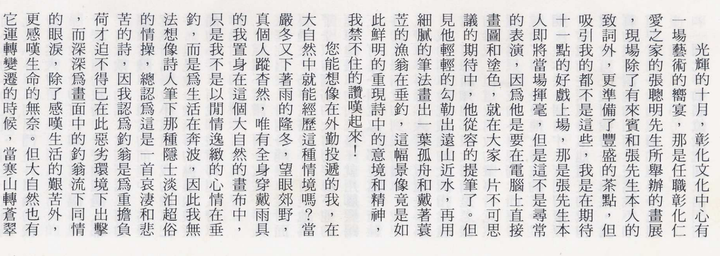 光輝的十月，彰化文化中心有
一場藝術的嚮宴，那是任職彰化仁
愛之家的張聰明先生所舉辦的畫展
，現場除了有來賓和張先生本人的
致詞外，更準備了豐盛的茶點，但
吸引我的都不是這些，我是在期待
十一點的好戲上場，那是張先生本
人即將當場揮毫，但是這不是尋常
的表演，因爲他是要在電腦上直接
畫圖和塗色，就在大家一片不可思
議的期待中，他從容的提筆了。但
見他輕輕的勾勒出遠山近水，再用
細膩的筆法畫出一葉孤舟和戴著蓑
苙的漁翁在垂釣，這幅景像竟是如
此鮮明的重現詩中的意境和精神，
我禁不住的讚嘆起來！
您能想像在外勤投遞的我，在
大自然中就能經歷這種情境嗎？當
嚴冬又下著雨的隆冬，望眼郊野，
真個人蹤杳然，唯有全身穿戴雨具
的我置身在這個大自然的畫布中，
只是我不是以閒情逸緻的心情在垂
釣，而是爲生活在奔波，因此我無
法想像詩人筆下那種隱士淡泊超俗
的情操，總認爲這是一首哀淒和悲
苦的詩，因我認爲釣翁是爲重擔負
荷才迫不得已在此惡劣環境下出擊
，而深深爲畫面中的釣翁流下同情
的眼淚，除了感嘆生活的艱苦外，
更感嘆生命的無奈。但大自然也有
它運轉變遷的時候，當寒山轉蒼翠